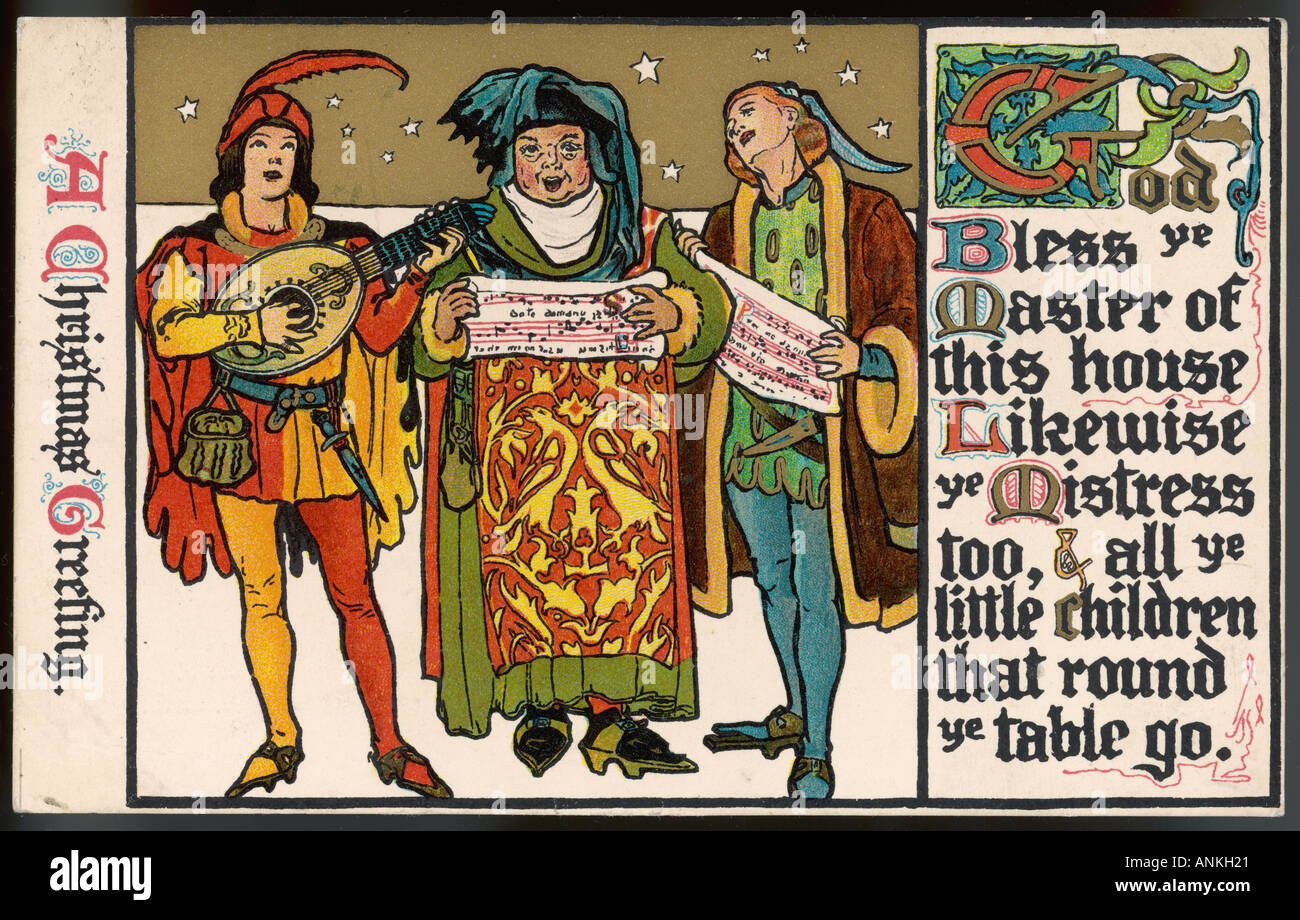 A Christmas Greeting.
God
Bless ye
Master of
this house
Likewise
ye Mistress
too, & all ye
little children
that round
ye table go.
alamy
alamy
Image ID: ANKH21
www.alamy.com